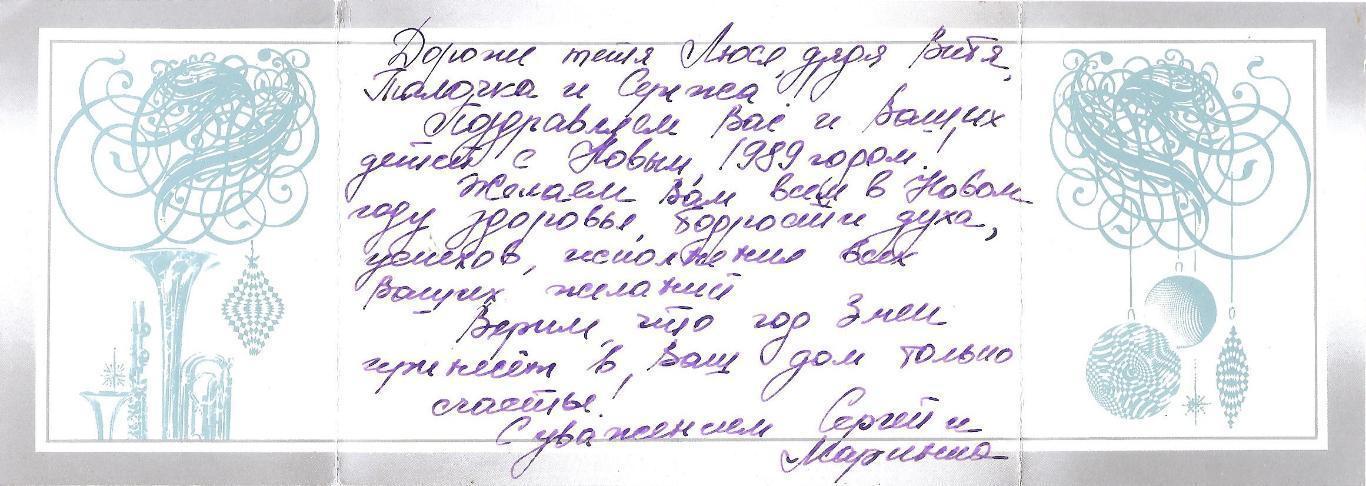 Дорогие тётя Люся, дядя Витя,
Галочка и Сережа
Поздравляем Вас и Ваших
детей с Новым 1989 годом.
Желаем Вам всем в Новом
году здоровья, бодрости духа,
успехов, исполнения всех
Ваших желаний
Верим, что год Змеи
принесёт в Ваш дом только
счастье!
С уважением Сергей и
Марина